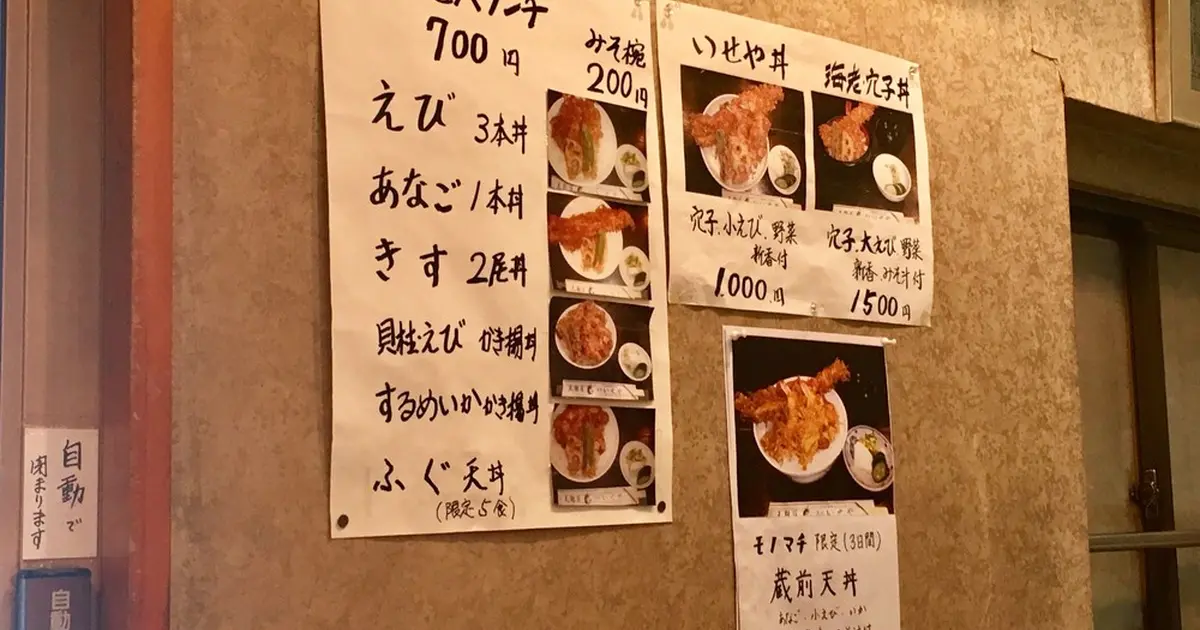 ランチ
700円
みそ椀
200円
えび 3本丼
あなご 1本丼
きす 2尾丼
貝柱・えび かき揚丼
するめいかかき揚丼
ふぐ 天丼
(限定5食)
いせや丼
穴子、小えび、野菜
新香付
1,000円
海老・穴子丼
穴子、大えび、野菜
新香、みそ汁付
1500円
モノマチ 限定(3日間)
蔵前天丼
あなご・小えび・いか
自動で
閉まります
自動